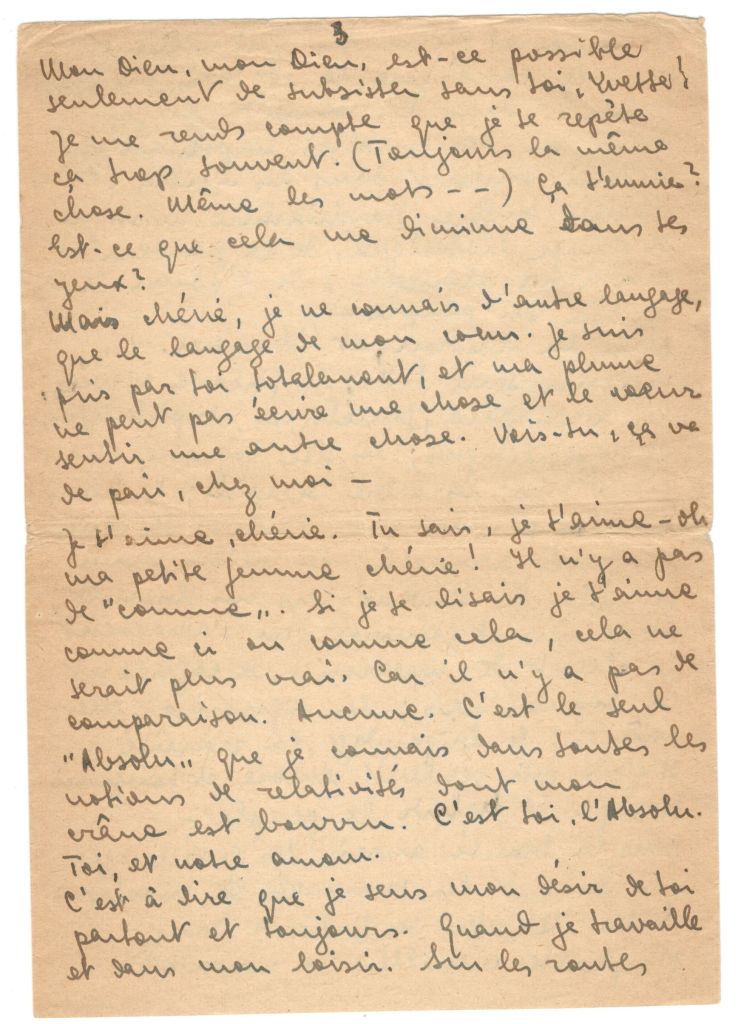 3
Mon Dieu, mon Dieu, est-ce possible
seulement de subsister sans toi, Yvette!
Je me rends compte que je te repète
ça trop souvent. (Toujours la même
chose. Même les mots --) Ça t'ennuie?
Est-ce que cela me diminue dans tes
yeux?
Mais chérie, je ne connais d'autre langage,
que le langage de mon coeur. Je suis
pris par toi totalement, et ma plume
ne peut pas écrire une chose et le coeur
sentir une autre chose. Vois-tu, ça va
de pair, chez moi —
Je t'aime, chérie. Tu sais, je t'aime - oh
ma petite femme chérie! Il n'y a pas
de "comme". Si je te disais je t'aime
comme ci ou comme cela, cela ne
serait plus vrai. Car il n'y a pas de
comparaison. Aucune. C'est le seul
"Absolu" que je connais dans toutes les
notions de relativités dont mon
crâne est bourru. C'est toi, l'Absolu.
Toi, et notre amour.
C'est à dire que je sens mon désir de toi
partout et toujours. Quand je travaille
et dans mon loisir. Sur les routes